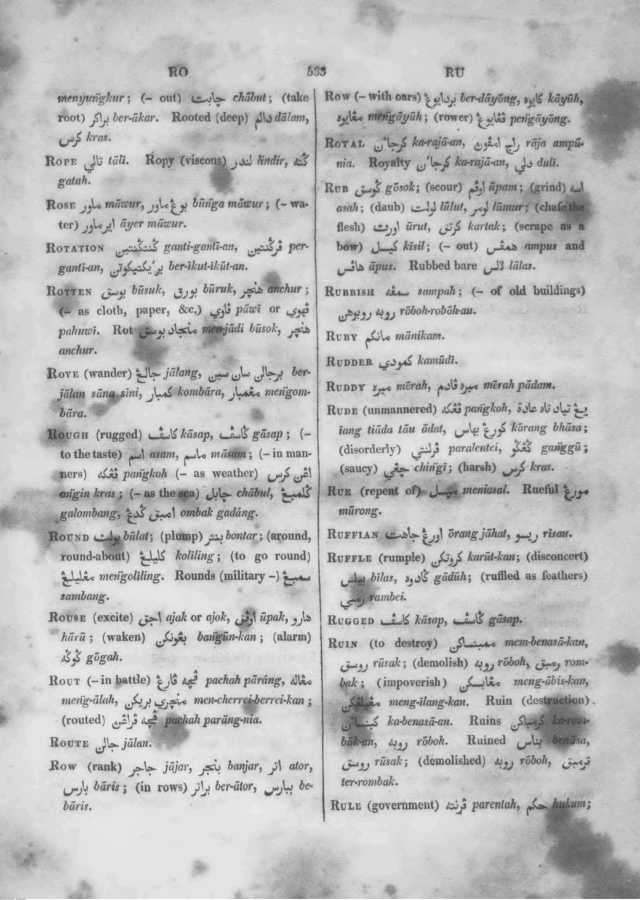 RO
533
RU
menyungkur; (– out) چابت chābut; (take
root) براكر ber-ākar. Rooted (deep) دالم dālam,
كرس kras.
ROPE تالي tāli. Ropy (viscous) لندر lindir,
gatah.
ROSE ماور māwur, بوڠ ماور būnga māwur; (– wa-
ter) اير ماور āyer māwur.
ROTATION ganti-gantī-an, per-
gantī-an, ber-īkut-ikūt-an.
ROTTEN بوسق būsuk, بورق būruk, هنچر anchur;
(– as cloth, paper, &c.) pāwi or
pahuwi. Rot منجادي بوسق men-jādi būsok, هنچر
anchur.
ROVE (wander) جالڠ jālang, برجالن سان سين ber-
jālan sāna sīni, كمبار kombāra, مڠمبار mengom-
bāra.
ROUGH (rugged) كاسف kāsap, ڬاسف gāsap; (–
to the taste) اسم asam, ماسم māsam; (– in man-
ners) pangkoh (– as weather) اڠن كرس
angin kras; (– as the sea) چابل chābul,
galombang, امبق ombak gadāng.
ROUND بولت būlat; (plump) بنتر bontar; (around,
round-about) كليلڠ koliling; (to go round)
مڠليلڠ mengoliling. Rounds (military –)
sambang.
ROUSE (excite) اجق ajak or ajok, ūpak, هارو
hārū; (waken) باڠونكن bangūn-kan; (alarm)
gōgah.
ROUT (– in battle) pachah parāng,
meng-ālah, men-cherrei-berrei-kan;
(routed) pachah parāng-nia.
ROUTE جالن jālan.
ROW (rank) جاجر jājar, بنجر banjar, اتر ator,
بارس bāris; (in rows) براتر ber-ātor, ببارس be-
bāris.
ROW (– with oars) بردايوڠ ber-dāyōng, كايوه kāyūh,
مڠايوه mengāyūh; (rower) penḡāyōng.
ROYAL كرجاءن ka-rajā-an, راج امڤون rāja ampū-
nia. Royalty كرجاءن ka-rajā-an, دلي duli.
RUB گوسق gōsok; (scour) اوڤم ūpam; (grind) اسه
asah; (daub) لولت lūlut, لومر lūmur; (chafe the
flesh) اورت ūrut, كرتق kartak; (scrape as a
bow) كيسل kisil; (– out) همڤس ampus and
هاڤس āpus. Rubbed bare لالس lālas.
RUBBISH سمڤه sampah; (– of old buildings)
rōboh-robōh-an.
RUBY مانكم mānikam.
RUDDER كمودي kamūdi.
RUDDY ميره mērah, ميره ڤادم mērah pādam.
RUDE (unmannered) pangkoh,
iang tiāda tāu ādat, كورڠ بهاس kōrang bhāsa;
(disorderly) paralenti, ganggū;
(saucy) چڠي chingī; (harsh) كرس kras.
RUE (repent of) meniasal. Rueful مورڠ
mūrong.
RUFFIAN اورڠ جاهت ōrang jāhat, ريسو rīsau.
RUFFLE (rumple) كروتكن karūt-kan; (disconcert)
bīlas, گادوه gādūh; (ruffled as feathers)
rambei.
RUGGED كاسف kāsap, ڬاسف gāsap.
RUIN (to destroy) ممبنساكن mem-benasā-kan,
روسق rūsak; (demolish) روبه rōboh, رمبق rom-
bak; (impoverish) مڠابسكن meng-ābis-kan,
مڠيلڠكن meng-īlang-kan. Ruin (destruction)
كبنساءن ka-benasā-an. Ruins
būk-an, روبه rōboh. Ruined بناس benāsa,
روسق rūsak; (demolished) روبه rōboh, ترمبق
ter-rombak.
RULE (government) ڤرنته parentah, حكم hukum;